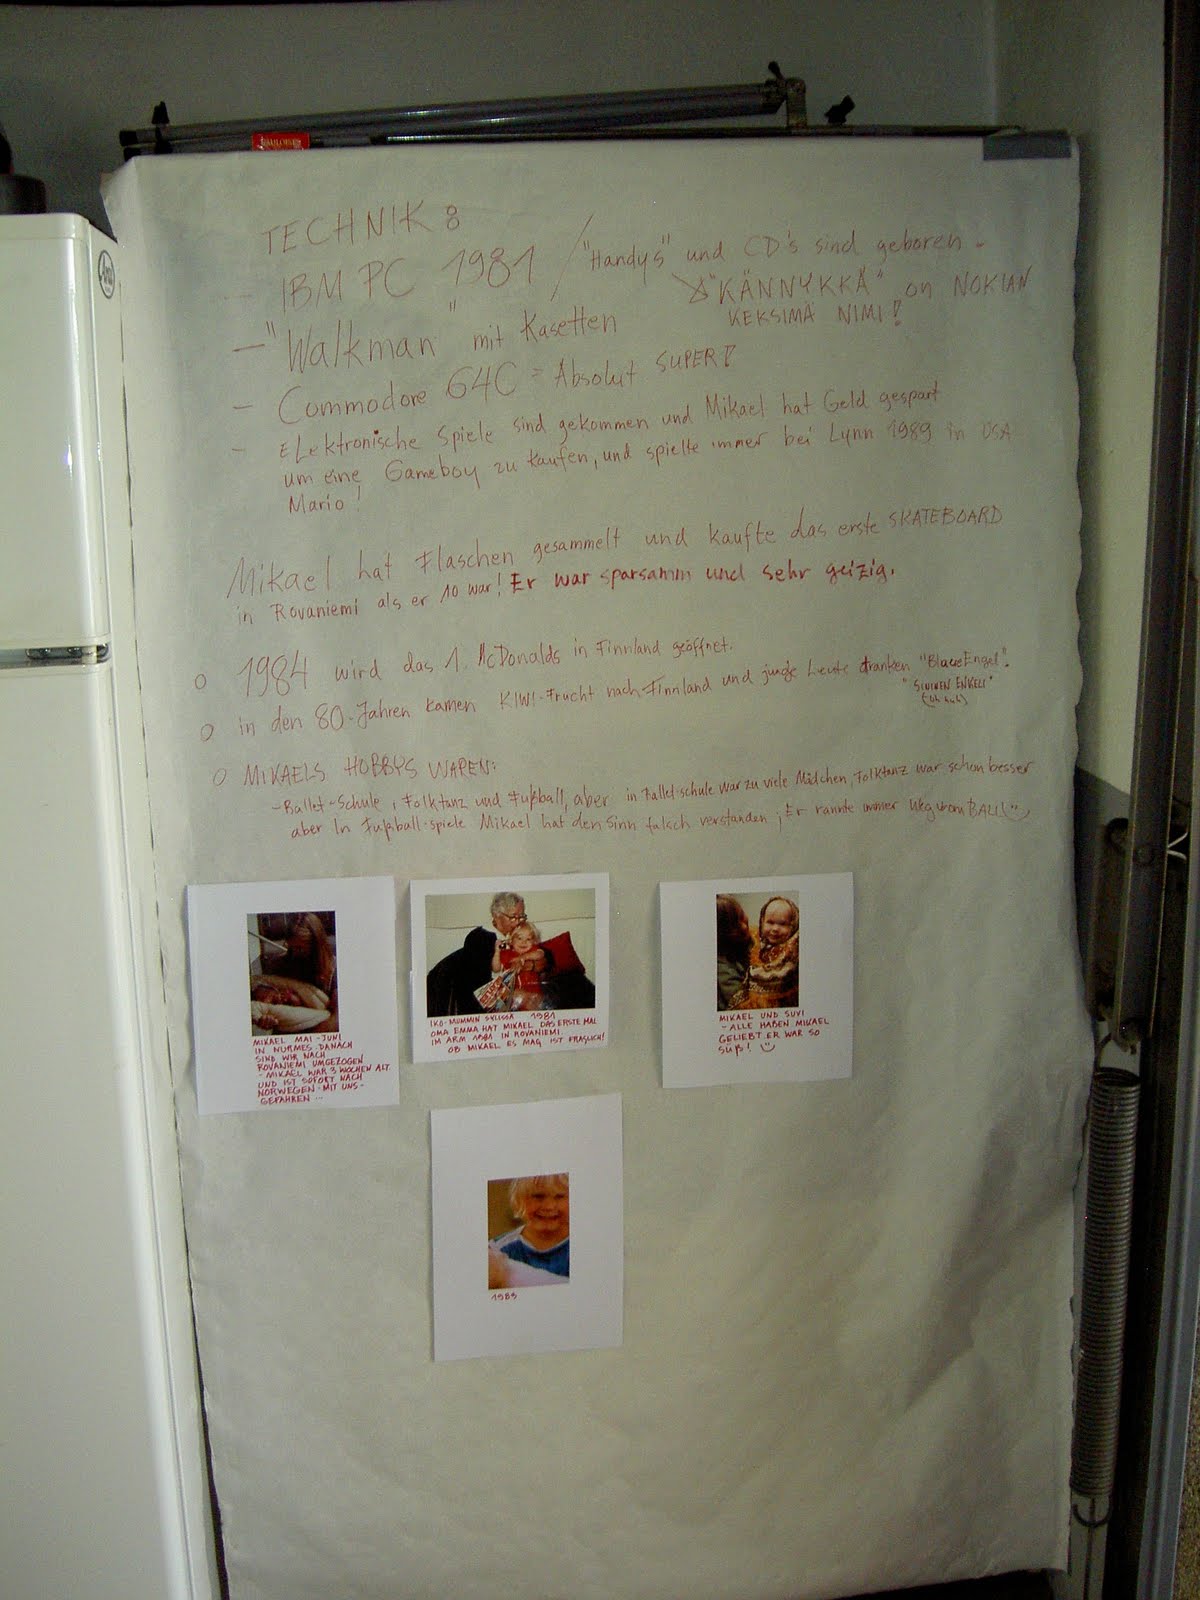 TECHNIK:
- IBM PC 1981 / "Handys" und CD's sind geboren -
"KÄNNYKKÄ" on NOKIAN
KEKSIMÄ NIMI!
- "Walkman" mit Kasetten
- Commodore 64C = Absolut SUPER!
- ELektronische Spiele sind gekommen und Mikael hat Geld gespart
um eine Gameboy zu kaufen, und spielte immer bei Lynn 1989 in USA
Mario!
Mikael hat Flaschen gesammelt und kaufte das erste SKATEBOARD
in Rovaniemi als er 10 war! Er war sparsamm und sehr geizig.
o 1984 wird das 1. McDonalds in Finnland geöffnet.
o in den 80-Jahren kamen KIWI-Frucht nach Finnland und junge Leute dranken "Blaue Engel".
"SININEN ENKELI"
o MIKAELS HOBBYS WAREN:
- Ballet-Schule, Folktanz und Fußball, aber in Ballet-schule war zu viele Mädchen, Folktanz war schon besser
aber In Fußball-spiele Mikael hat den Sinn falsch verstanden; Er rannte immer weg vom BALL
MIKAEL MAI-JUNI
IN NURMES. DANACH
SIND WIR NACH
ROVANIEMI UMGEZOGEN
- MIKAEL WAR 3 WOCHEN ALT
UND IST SOFORT NACH
NORWEGEN -MIT UNS-
GEFAHREN ...
IKO-MUMMIN SYLISSÄ 1981
OMA EMMA HAT MIKAEL DAS ERSTE MAL
IM ARM 1981 IN ROVANIEMI.
OB MIKAEL ES MAG IST FRAGLICH!
MIKAEL UND SUVI
- ALLE HABEN MIKAEL
GELIEBT ER WAR SO
SÜß!